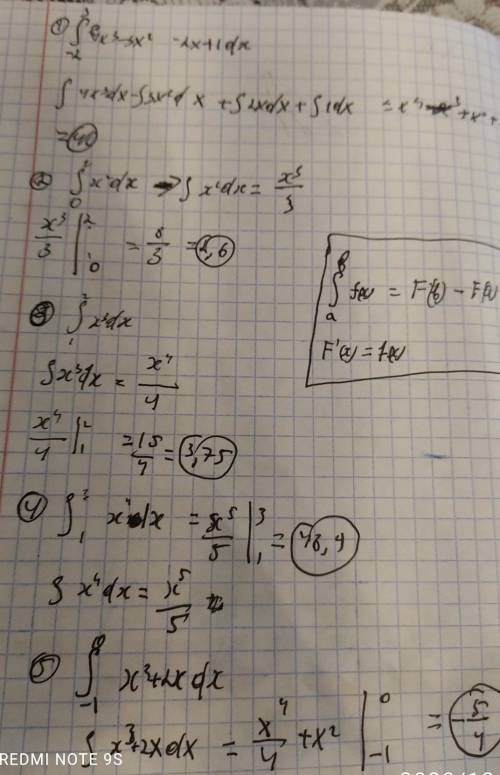 ① ∫₋₂³ 4x³-3x² -2x+1dx
∫ 4x³dx-∫3x²dx + ∫2xdx + ∫1dx = x⁴ - x³ + x² +
= 40
② ∫₀² x²dx → ∫ x²dx = x³/3
x³/3 |₀² = 8/3 = 2,6
∫ₐᵇ f(x) = F(b) - F(a)
F'(x) = f(x)
③ ∫₁² x³dx
∫x³dx = x⁴/4
x⁴/4 |₁² = 15/4 = 3,75
④ ∫₁³ x⁴dx = x⁵/5 |₁³ = 48,4
∫ x⁴dx = x⁵/5
⑤ ∫₋₁⁰ x³+2x dx
∫ x³+2x dx = x⁴/4 + x² |₋₁⁰ = -5/4
REDMI NOTE 9S